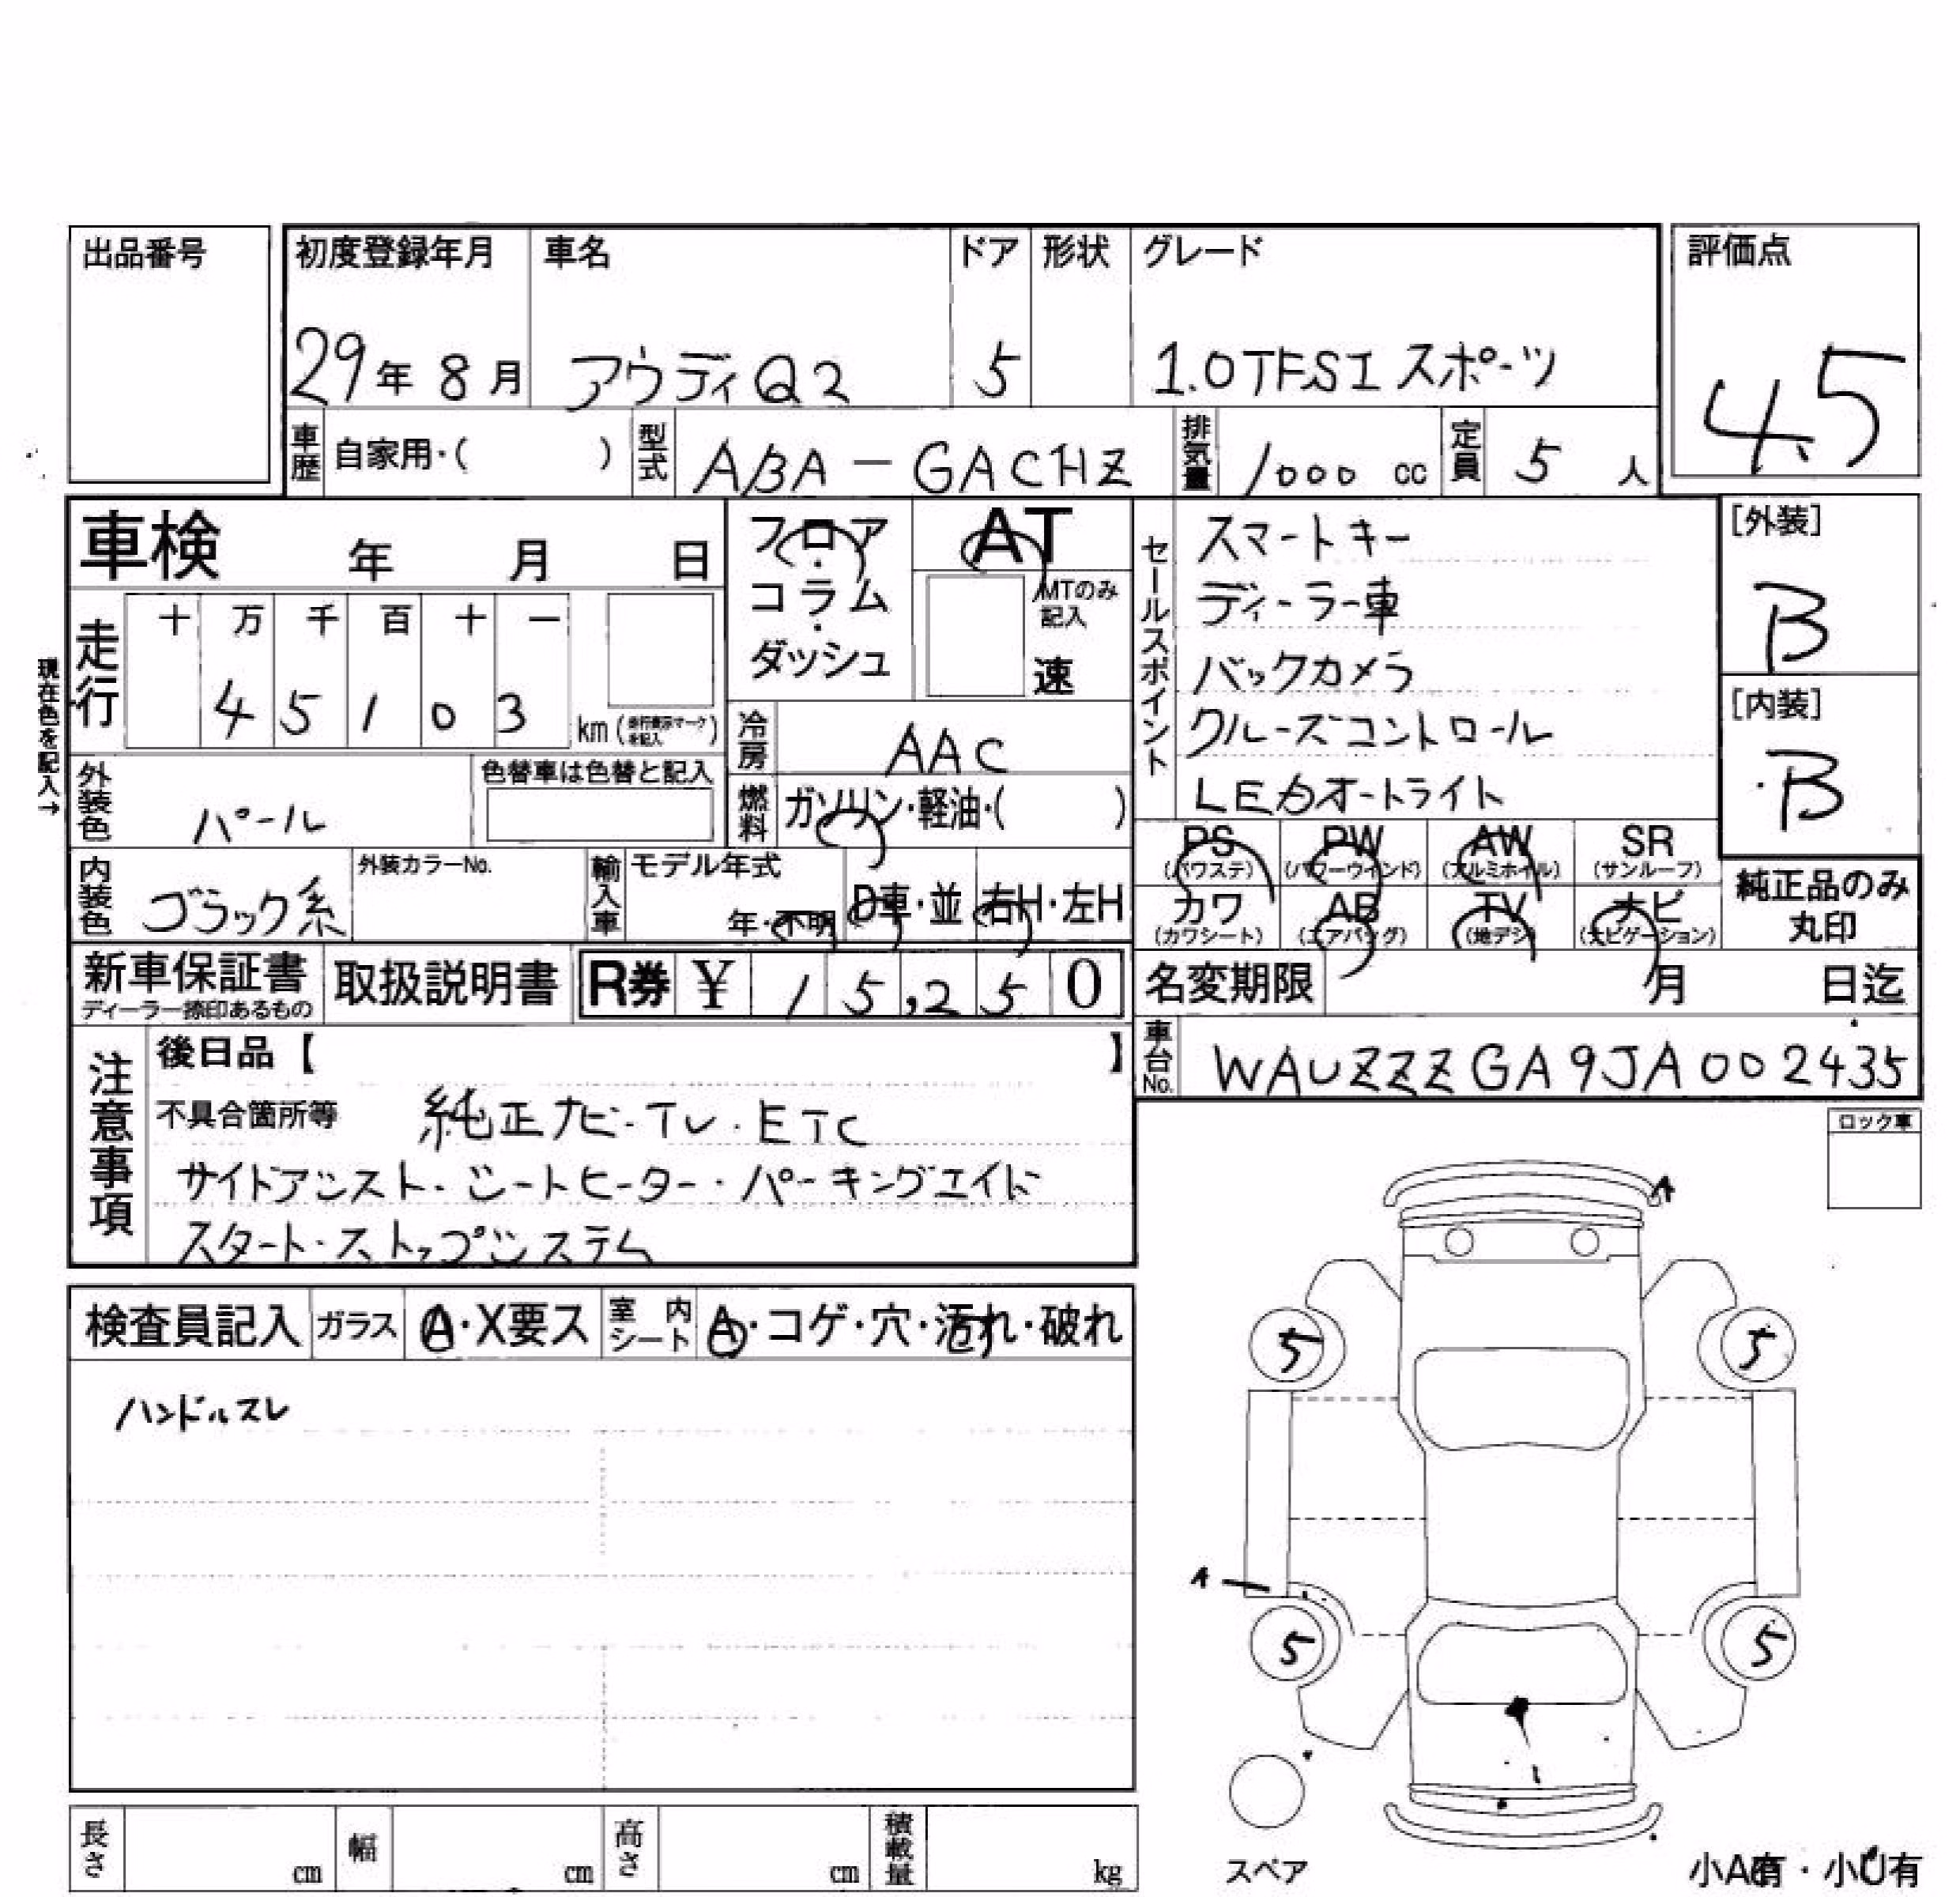 出品番号
初度登録年月 車名 ドア 形状 グレード
29年 8月 アウディQ2 5 1.0TFSI スポーツ
評価点
4.5
車歴 自家用・( ) 型式 ABA-GACHZ 排気量 1000 cc 定員 5 人
車検 年 月 日
フロア・コラム・ダッシュ
AT
MTのみ記入
速
現在色を記入→
走行 十 万 千 百 十 一
4 5 1 0 3 km (走行表示マークを記入)
冷房 AAC
外装色 パール 色替車は色替と記入
燃料 ガソリン・軽油・( )
内装色 ブラック系 外装カラーNo.
輸入車 モデル年式 年・不明 D車・並 右H・左H
セールスポイント
スマートキー
ディーラー車
バックカメラ
クルーズコントロール
LEDオートライト
[外装]
B
[内装]
B
PS (パワステ) PW (パワーウインド) AW (アルミホイル) SR (サンルーフ)
カワ (カワシート) AB (エアバッグ) TV (地デジ) ナビ (ナビゲーション)
純正品のみ
丸印
新車保証書 取扱説明書 R券 ¥ 15,250
ディーラー捺印あるもの
名変期限 月 日迄
車台No. WAUZZZGA9JA002435
注意事項
後日品【 】
不具合箇所等 純正ナビ・TV・ETC
サイドアシスト・シートヒーター・パーキングエイド
スタート・ストップシステム
ロック車
検査員記入 ガラス A・X要ス 室内シート A・コゲ・穴・汚れ・破れ
ハンドルスレ
A
5 5
A
5 5
スペア
小A有・小U有
長さ cm 幅 cm 高さ cm 積載量 kg